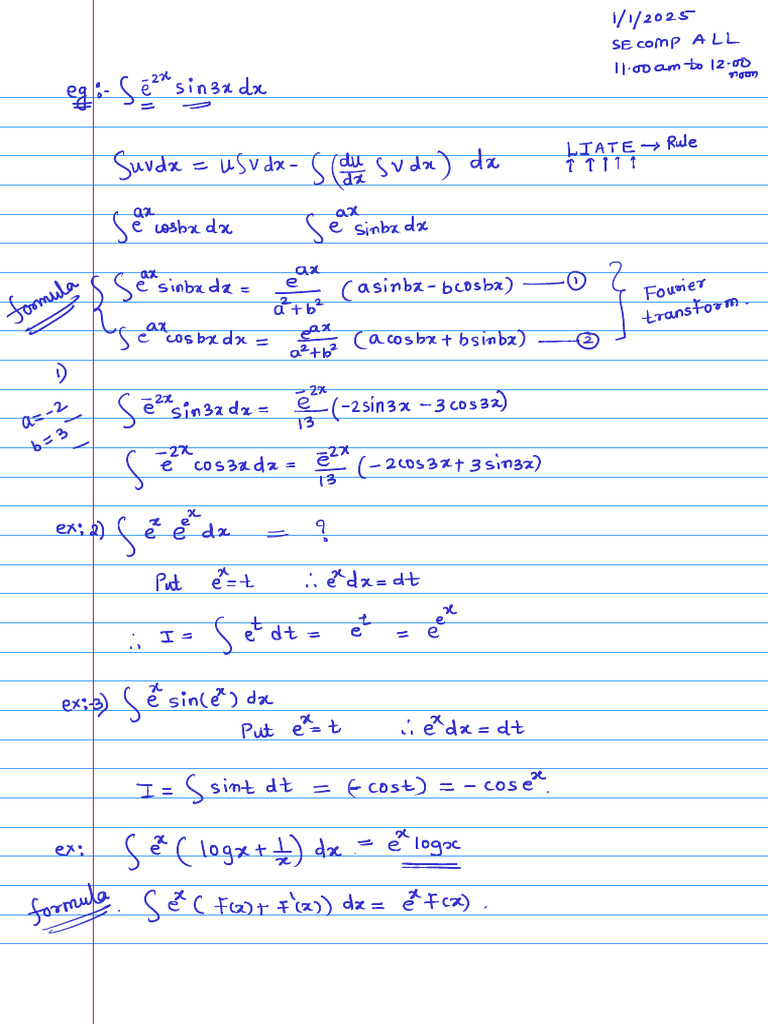 1/1/2025
SE comp ALL
11.00am to 12.00 noon
eg:- ∫ e^{-2x} sin3x dx
∫uvdx = u∫vdx - ∫(du/dx ∫vdx) dx
LIATE → Rule
↑ ↑ ↑ ↑ ↑
∫e^{ax} cosbx dx ∫e^{ax} sinbx dx
formula { ∫e^{ax} sinbx dx = e^{ax}/(a²+b²) (a sinbx - b cosbx) — ①
∫e^{ax} cosbx dx = e^{ax}/(a²+b²) (a cosbx + b sinbx) — ②
} Fourier
transform.
1)
a=-2
b=3
∫e^{-2x} sin3x dx = e^{-2x}/13 (-2sin3x - 3cos3x)
∫e^{-2x} cos3x dx = e^{-2x}/13 (-2cos3x + 3sin3x)
ex:2) ∫ e^x e^{e^x} dx = ?
Put e^x = t ∴ e^x dx = dt
∴ I = ∫ e^t dt = e^t = e^{e^x}
ex:-3) ∫ e^x sin(e^x) dx
Put e^x = t ∴ e^x dx = dt
I = ∫ sint dt = (-cost) = - cose^x.
ex: ∫ e^x (logx + 1/x) dx = e^x logx
formula. ∫ e^x (f(x) + f'(x)) dx = e^x f(x).